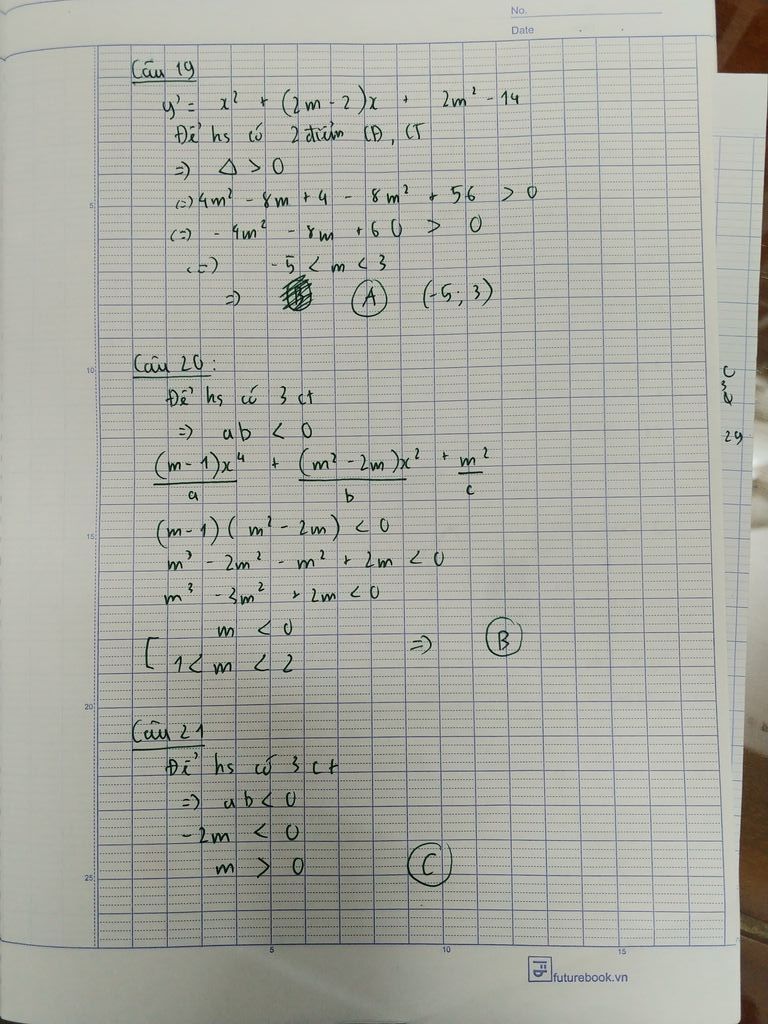 No.
Date
Câu 19
y' = x² + (2m - 2)x + 2m² - 14
Để hs có 2 điểm CĐ, CT
=> Δ > 0
(=) 4m² - 8m + 4 - 8m² + 56 > 0
(=) - 4m² - 8m + 60 > 0
(=) -5 < m < 3
=> A (-5; 3)
Câu 20:
Để hs có 3 ct
=> ab < 0
(m - 1)x⁴ + (m² - 2m)x² + m²
a b c
(m - 1)(m² - 2m) < 0
m³ - 2m² - m² + 2m < 0
m³ - 3m² + 2m < 0
m < 0
[ 1 < m < 2 => B
Câu 21
Để hs có 3 ct
=> ab < 0
-2m < 0
m > 0 C
5
10
15
20
25
5 10 15
futurebook.vn
29